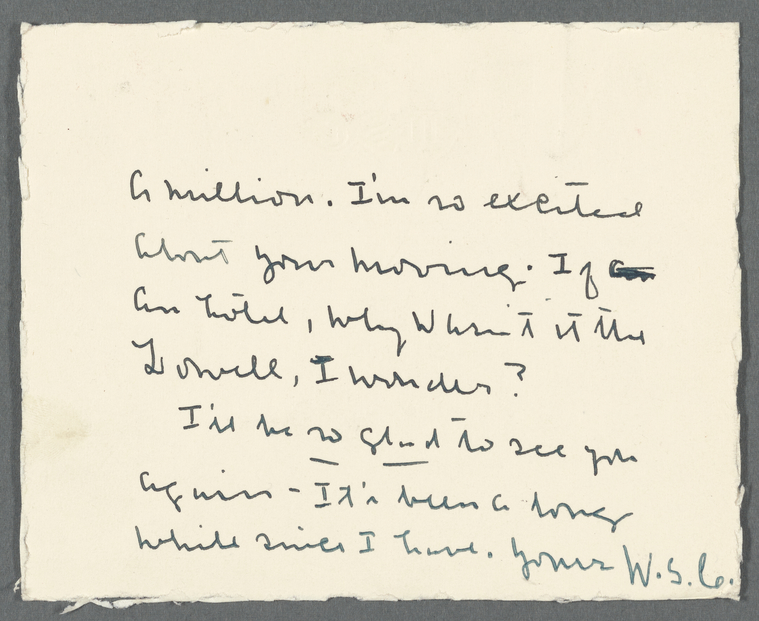 a million. I'm so excited
about your moving. If
an hôtel, why wasn't it the
Lowell, I wonder?
I'll be so glad to see you
again - It's been a long
while since I have. Yours W.S.C.